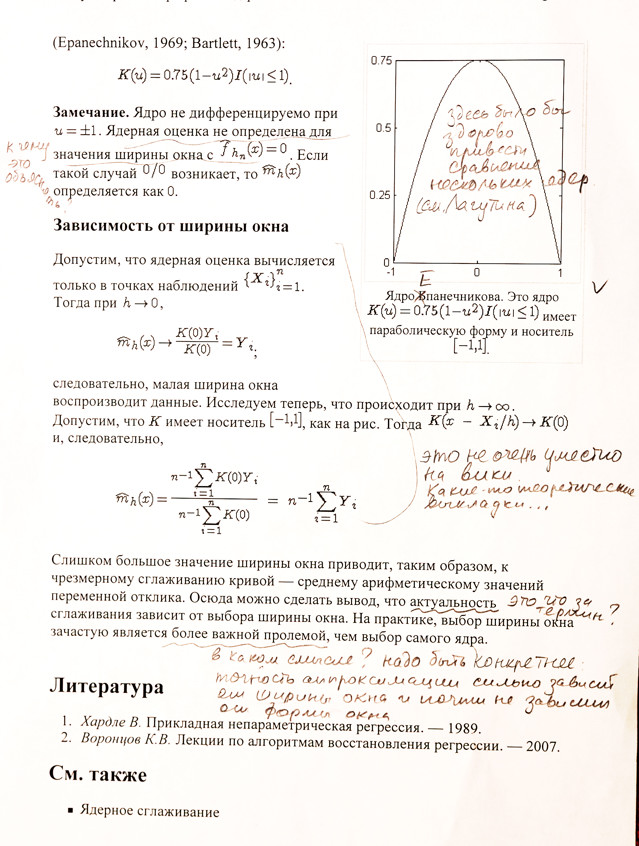 (Epanechnikov, 1969; Bartlett, 1963):
K(u) = 0.75(1−u²)I(|u| ≤ 1).
Замечание. Ядро не дифференцируемо при
u = ±1. Ядерная оценка не определена для
значения ширины окна с f̂_{h_n}(x) = 0. Если
такой случай 0/0 возникает, то m̂_h(x)
определяется как 0.
к чему
это
0.75
0.5
0.25
0
-1
0
1
здесь было бы
здорово
привести
сравнение
нескольких ядер
(см. Лагутина)
Е
Ядро Епанечникова. Это ядро
K(u) = 0.75(1−u²)I(|u| ≤ 1) имеет
параболическую форму и носитель
[−1,1].
V
Зависимость от ширины окна
Допустим, что ядерная оценка вычисляется
только в точках наблюдений {X_i}ⁿ_{i=1}.
Тогда при h → 0,
m̂_h(x) → K(0)Y_i / K(0) = Y_i,
следовательно, малая ширина окна
воспроизводит данные. Исследуем теперь, что происходит при h → ∞.
Допустим, что K имеет носитель [−1,1], как на рис. Тогда K(x − X_i/h) → K(0)
и, следовательно,
m̂_h(x) = n⁻¹∑ⁿ_{i=1} K(0)Y_i / n⁻¹∑ⁿ_{i=1} K(0) = n⁻¹∑ⁿ_{i=1} Y_i
это не очень уместно
на вики.
Какие-то теоретические
выкладки...
Слишком большое значение ширины окна приводит, таким образом, к
чрезмерному сглаживанию кривой — среднему арифметическому значений
переменной отклика. Осюда можно сделать вывод, что актуальность
это что за
термин?
сглаживания зависит от выбора ширины окна. На практике, выбор ширины окна
зачастую является более важной пролемой, чем выбор самого ядра.
в каком смысле? надо быть конкретнее:
точность аппроксимации сильно зависит
от ширины окна и почти не зависит
от формы окна
Литература
1. Хардле В. Прикладная непараметрическая регрессия. — 1989.
2. Воронцов К.В. Лекции по алгоритмам восстановления регрессии. — 2007.
См. также
▪ Ядерное сглаживание